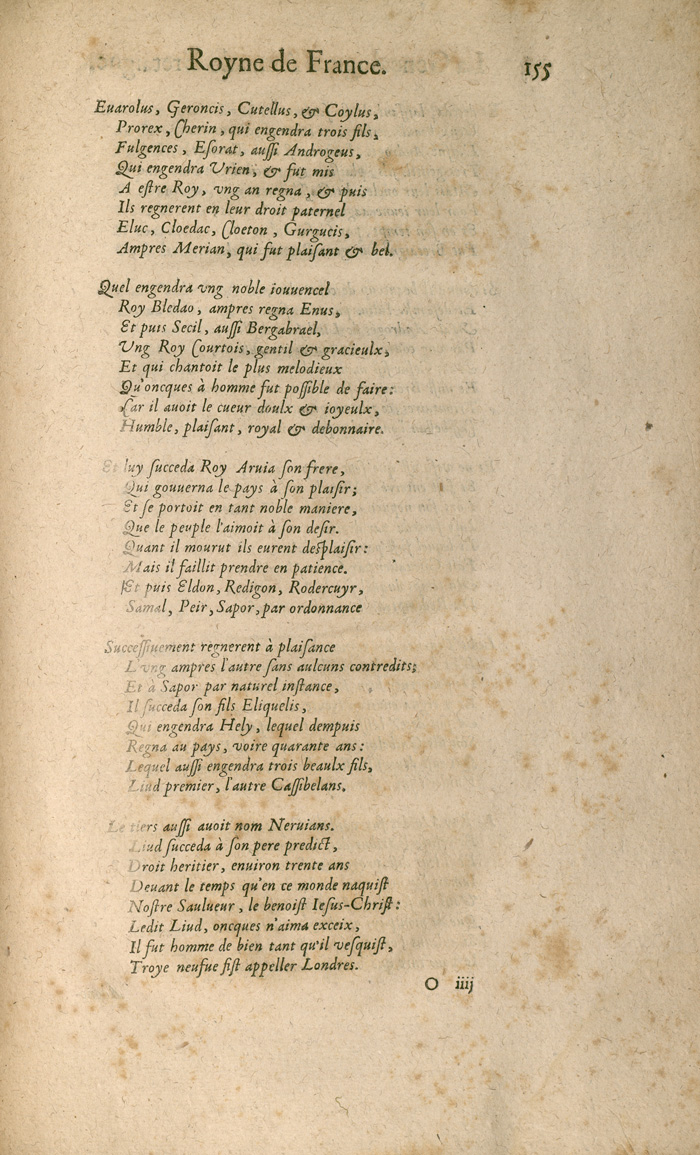 Royne de France. 155
Euarolus, Geroncis, Cutellus, & Coylus,
Prorex, Cherin, qui engendra trois fils,
Fulgences, Esorat, aussi Androgeus,
Qui engendra Vrien, & fut mis
A estre Roy, vng an regna, & puis
Ils regnerent en leur droit paternel
Eluc, Cloedac, Cloeton, Gurgucis,
Ampres Merian, qui fut plaisant & bel.
Quel engendra vng noble iouuencel
Roy Bledao, ampres regna Enus,
Et puis Secil, aussi Bergabrael,
Vng Roy Courtois, gentil & gracieulx,
Et qui chantoit le plus melodieux
Qu'oncques à homme fut possible de faire:
Car il auoit le cueur doulx & ioyeulx,
Humble, plaisant, royal & debonnaire.
Et luy succeda Roy Aruia son frere,
Qui gouuerna le pays à son plaisir;
Et se portoit en tant noble maniere,
Que le peuple l'aimoit à son desir.
Quant il mourut ils eurent desplaisir:
Mais il faillit prendre en patience.
Et puis Eldon, Redigon, Rodercuyr,
Samal, Peir, Sapor, par ordonnance
Successiuement regnerent à plaisance
L'vng ampres l'autre sans aulcuns contredits;
Et à Sapor par naturel instance,
Il succeda son fils Eliquelis,
Qui engendra Hely, lequel dempuis
Regna au pays, voire quarante ans:
Lequel aussi engendra trois beaulx fils,
Liud premier, l'autre Cassibelans.
Le tiers aussi auoit nom Neruians.
Liud succeda à son pere predict,
Droit heritier, enuiron trente ans
Deuant le temps qu'en ce monde naquist
Nostre Saulueur, le benoist Iesus-Christ:
Ledit Liud, oncques n'aima exceix,
Il fut homme de bien tant qu'il vesquist,
Troye neufue fist appeller Londres.
O iiij